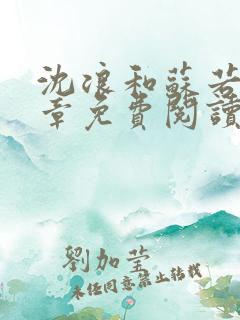 沈浪和蘇若
章免費閱讀
劉加瑩
未經同意禁止轉載